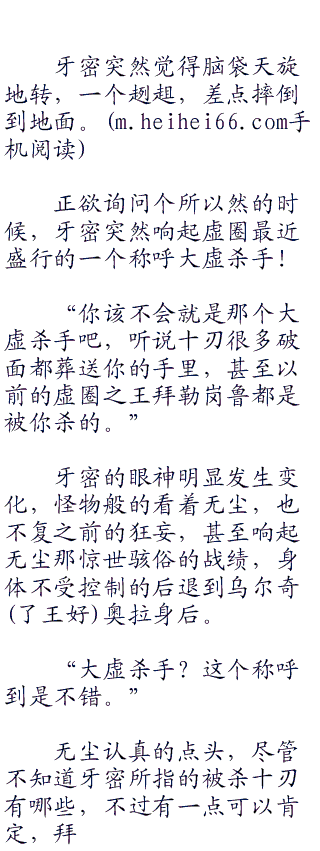 牙密突然觉得脑袋天旋
地转，一个趔趄，差点摔倒
到地面。(m.heihei66.com手
机阅读)
正欲询问个所以然的时
候，牙密突然响起虚圈最近
盛行的一个称呼大虚杀手！
“你该不会就是那个大
虚杀手吧，听说十刃很多破
面都葬送你的手里，甚至以
前的虚圈之王拜勒岗鲁都是
被你杀的。”
牙密的眼神明显发生变
化，怪物般的看着无尘，也
不复之前的狂妄，甚至响起
无尘那惊世骇俗的战绩，身
体不受控制的后退到乌尔奇
(了王好)奥拉身后。
“大虚杀手？这个称呼
到是不错。”
无尘认真的点头，尽管
不知道牙密所指的被杀十刃
有哪些，不过有一点可以肯
定，拜